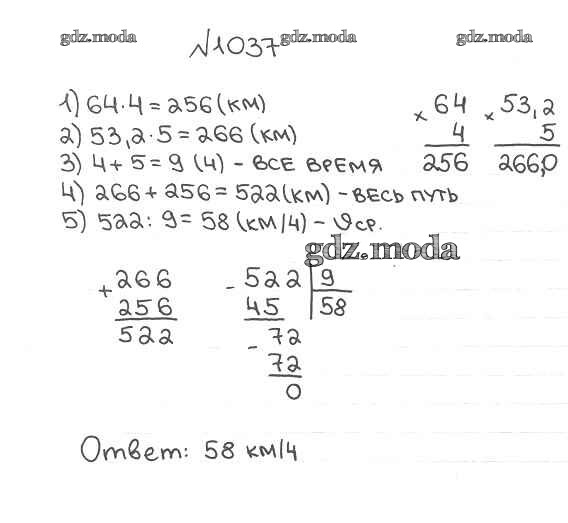 gdz.moda gdz.moda gdz.moda
№1037
1) 64·4 = 256 (км)
2) 53,2·5 = 266 (км)
3) 4 + 5 = 9 (ч) - ВСЕ ВРЕМЯ
4) 266 + 256 = 522 (км) - ВЕСЬ ПУТЬ
5) 522 : 9 = 58 (км/ч) - υ ср.
× 64
4
256
× 53,2
5
266,0
gdz.moda
+ 266
256
522
- 522 | 9
45 | 58
- 72
72
0
Ответ: 58 км/ч